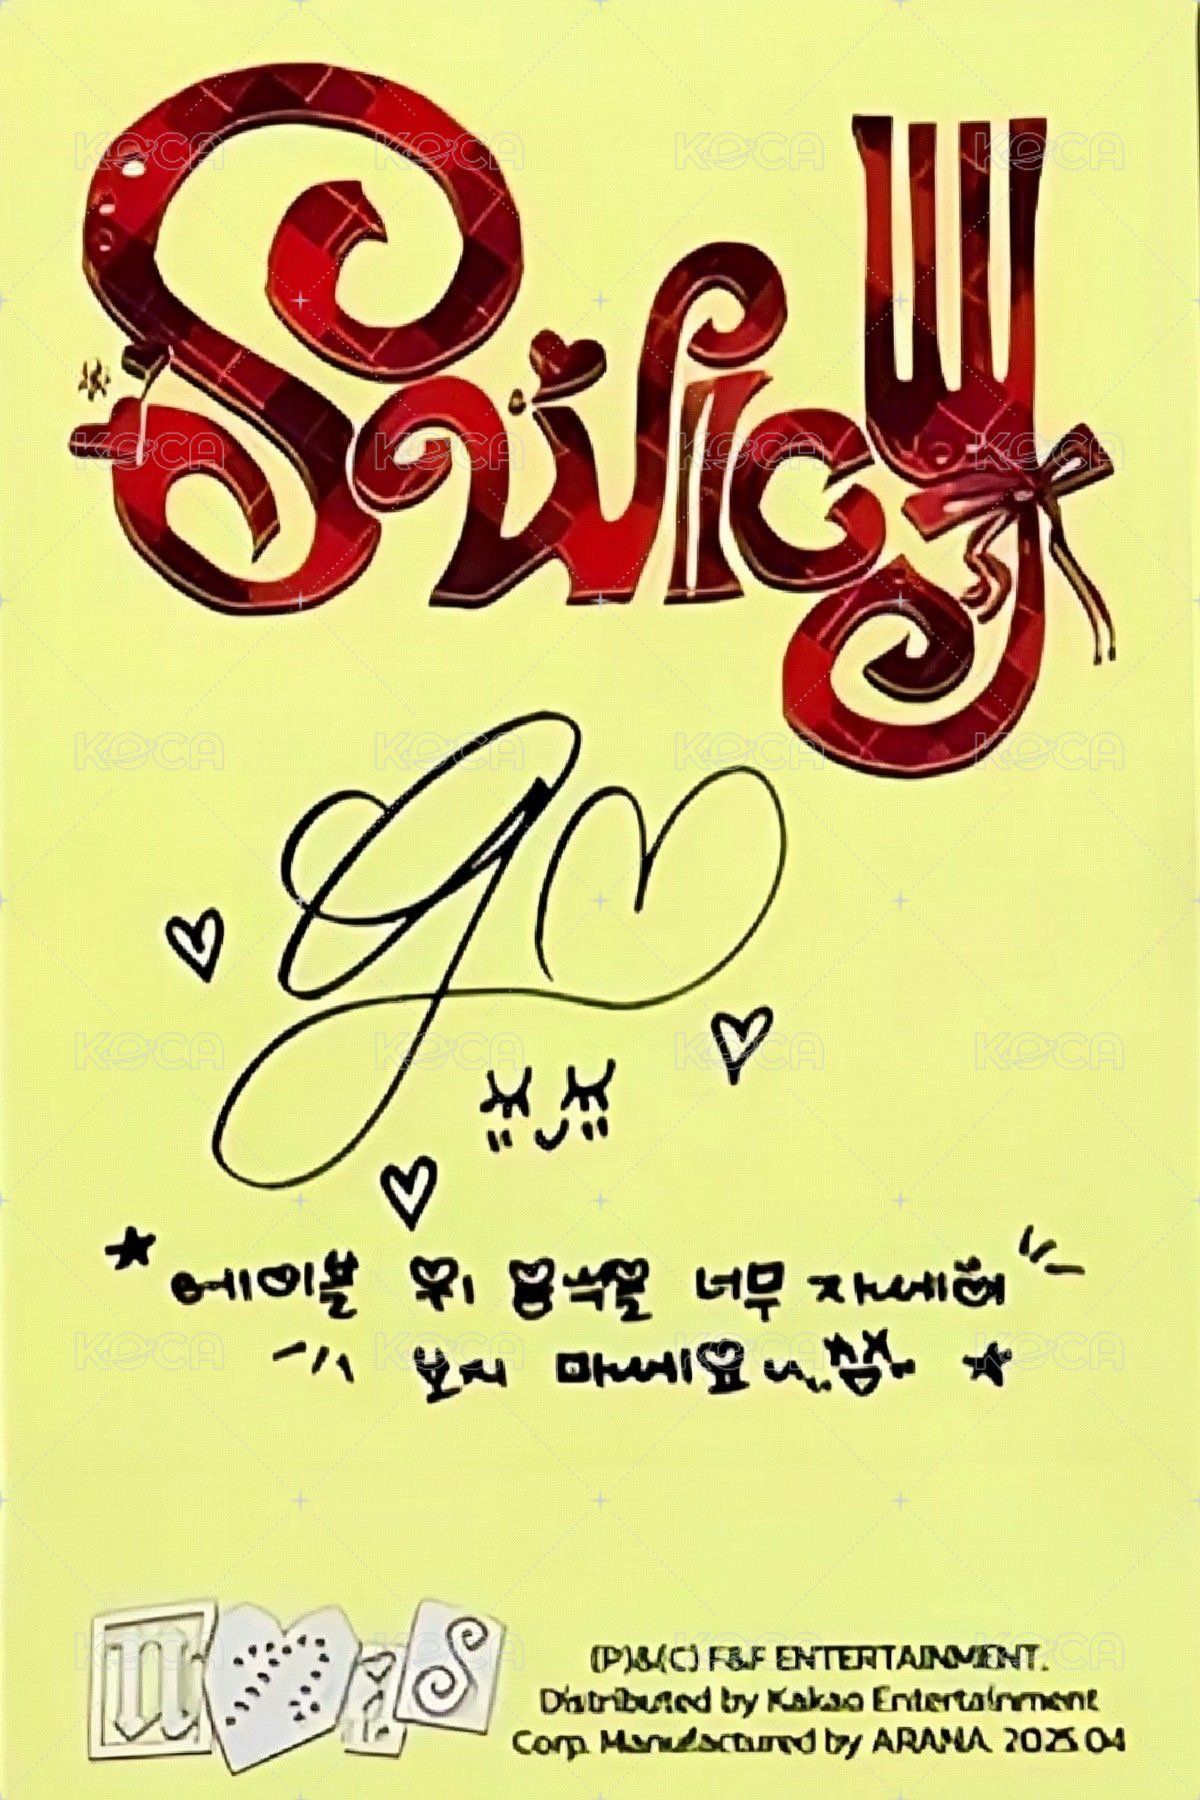 Swicy
에이블 위 용속물 너무 자세히
보지 마세요
(P)&(C) F&F ENTERTAINMENT.
Distributed by Kakao Entertainment
Corp. Manufactured by ARANA. 2025.04
KOCA